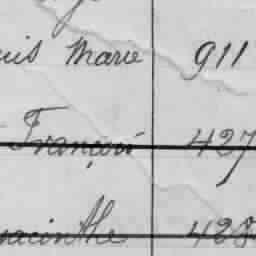 uis Marie 911
François 427
yacinthe 428